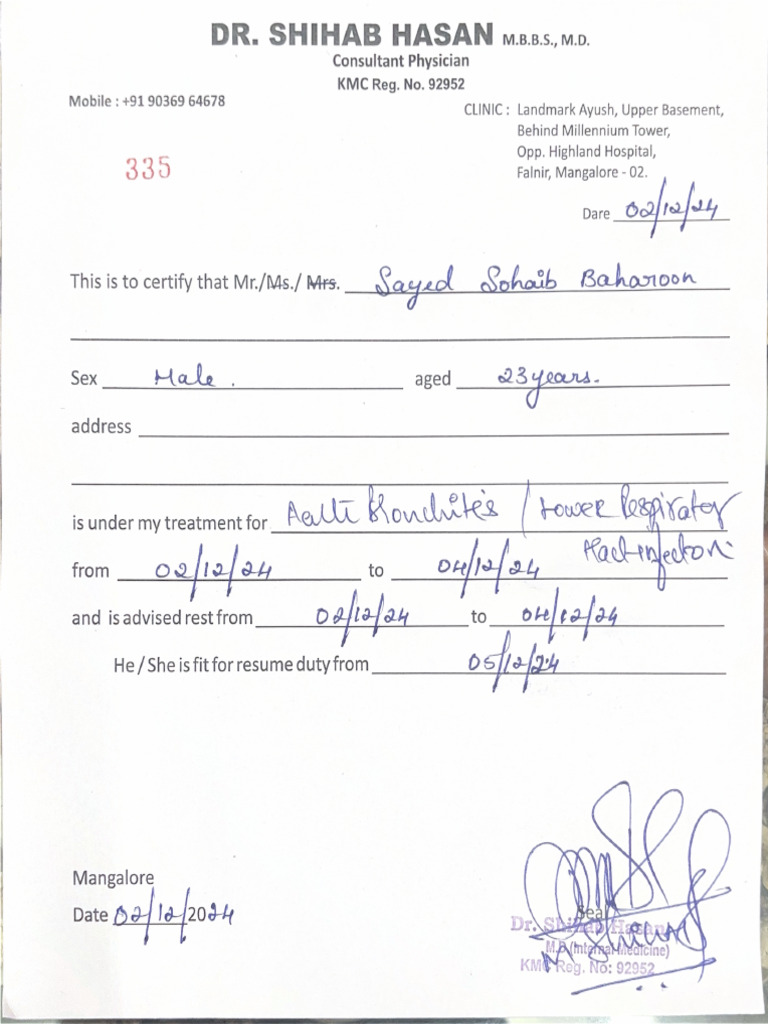 DR. SHIHAB HASAN M.B.B.S., M.D.
Consultant Physician
KMC Reg. No. 92952
Mobile : +91 90369 64678
CLINIC : Landmark Ayush, Upper Basement,
Behind Millennium Tower,
Opp. Highland Hospital,
Falnir, Mangalore - 02.
335
Dare 02/12/24
This is to certify that Mr./Ms./ Mrs. Sayed Sohaib Baharoon
Sex Male . aged 23 years.
address
is under my treatment for / Lower Respiratory
Tract infection
from 02/12/24 to 04/12/24
and is advised rest from 02/12/24 to 04/12/24
He / She is fit for resume duty from 05/12/24
Mangalore
Date 02/12/2024
Seal
Dr. Shihab Hasan
M.D (Internal Medicine)
KMC Reg. No: 92952